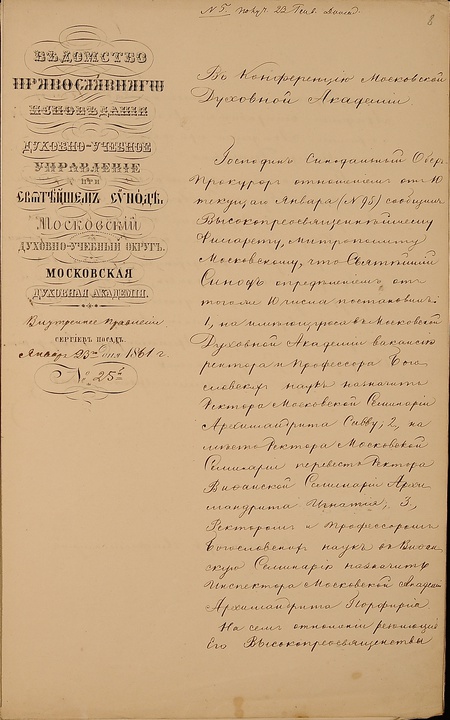 № 5. получ. 23 Генв.
8
ВѢДОМСТВО
ПРАВОСЛАВНАГО
ИСПОВѢДАНІЯ
ДУХОВНО-УЧЕБНОЕ
УПРАВЛЕНІЕ
ПРИ
СВЯТѢЙШЕМЪ СѴНОДѢ.
МОСКОВСКІЙ
ДУХОВНО-УЧЕБНЫЙ ОКРУГЪ.
МОСКОВСКАЯ
ДУХОВНАЯ АКАДЕМІЯ.
Внутреннее Правленіе
СЕРГІЕВЪ ПОСАДЪ.
Января 23 дня 1861 г.
№ 25
Въ Конференцію Московской
Духовной Академіи.
Господинъ Синодальный Оберъ-
Прокуроръ отношеніемъ отъ 10
текущаго Января (№ 95) сообщилъ
Высокопреосвященнѣйшему
Филарету, Митрополиту
Московскому, что Святѣйшій
Синодъ опредѣленіемъ отъ
того же 10 числа постановилъ:
1, на имѣющуюся въ Московской
Духовной Академіи вакансію
ректора и Профессора Бого-
словскихъ наукъ назначить
Ректора Московской Семинаріи
Архимандрита Савву; 2, на
мѣсто Ректора Московской
Семинаріи перевесть Ректора
Виѳанской Семинаріи Архи-
мандрита Игнатія; 3,
Ректоромъ и Профессоромъ
Богословскихъ наукъ въ Виѳан-
скую Семинарію назначить
Инспектора Московской Академіи
Архимандрита Порфирія.
На семъ отношеніи резолюція
Его Высокопреосвященства